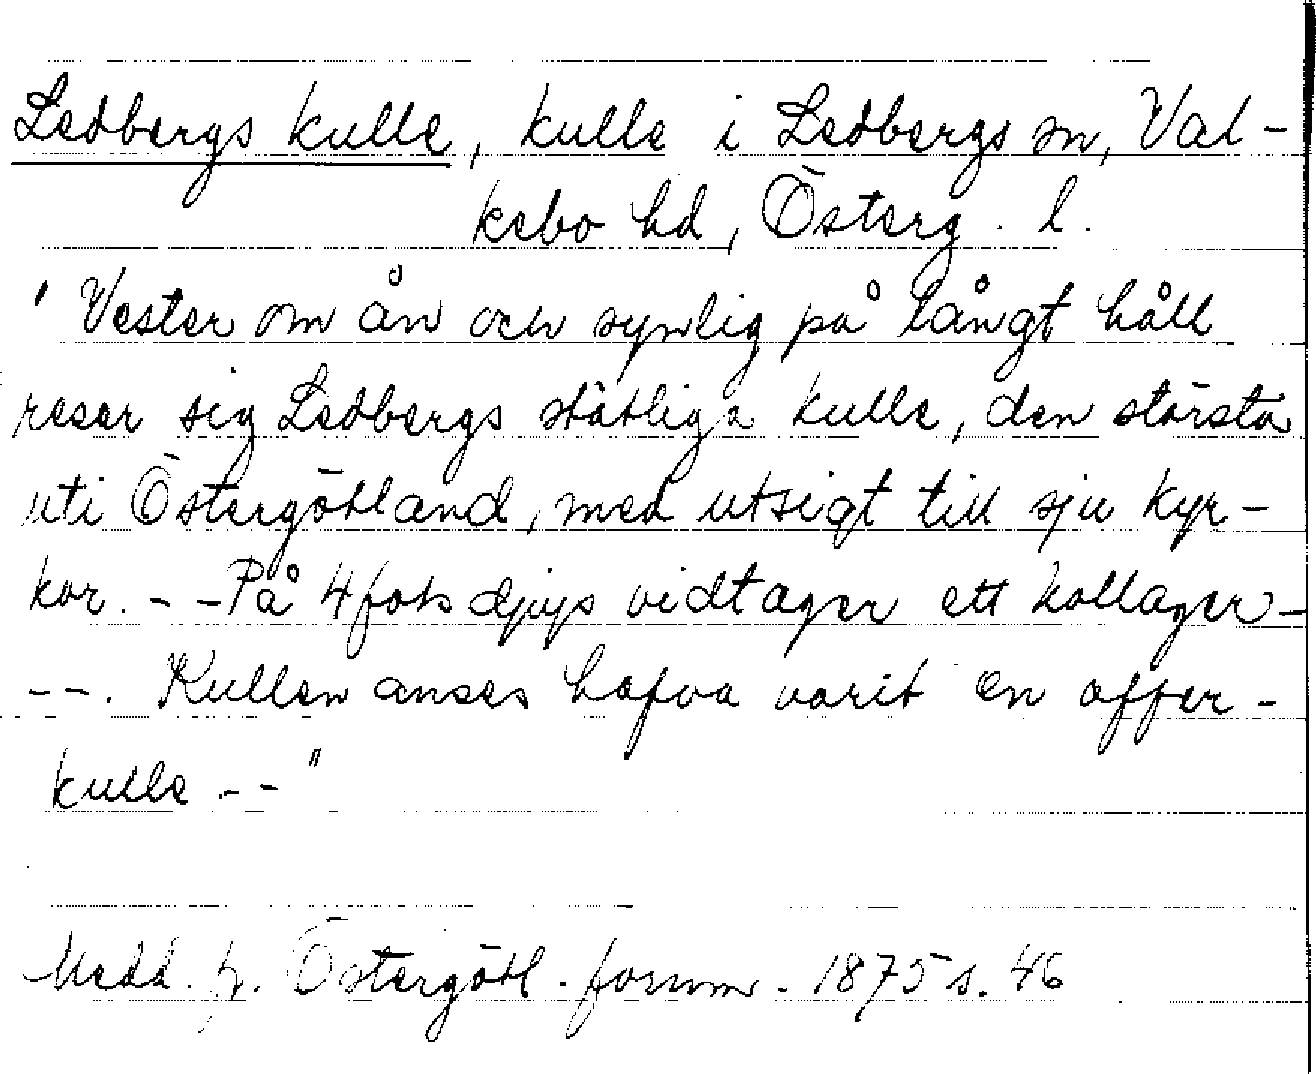 Ledbergs kulle, kulle i Ledbergs sn, Val-
kebo hd, Österg. l.
"Vester om ån och synlig på långt håll
reser sig Ledbergs ståtliga kulle, den största
uti Östergötland, med utsigt till sju kyr-
kor. - - På 4 fots djup vidtager ett kollager -
- -. Kullen anses hafva varit en offer-
kulle - -"
Medd. fr. Östergötl. fornm. 1875 s. 46